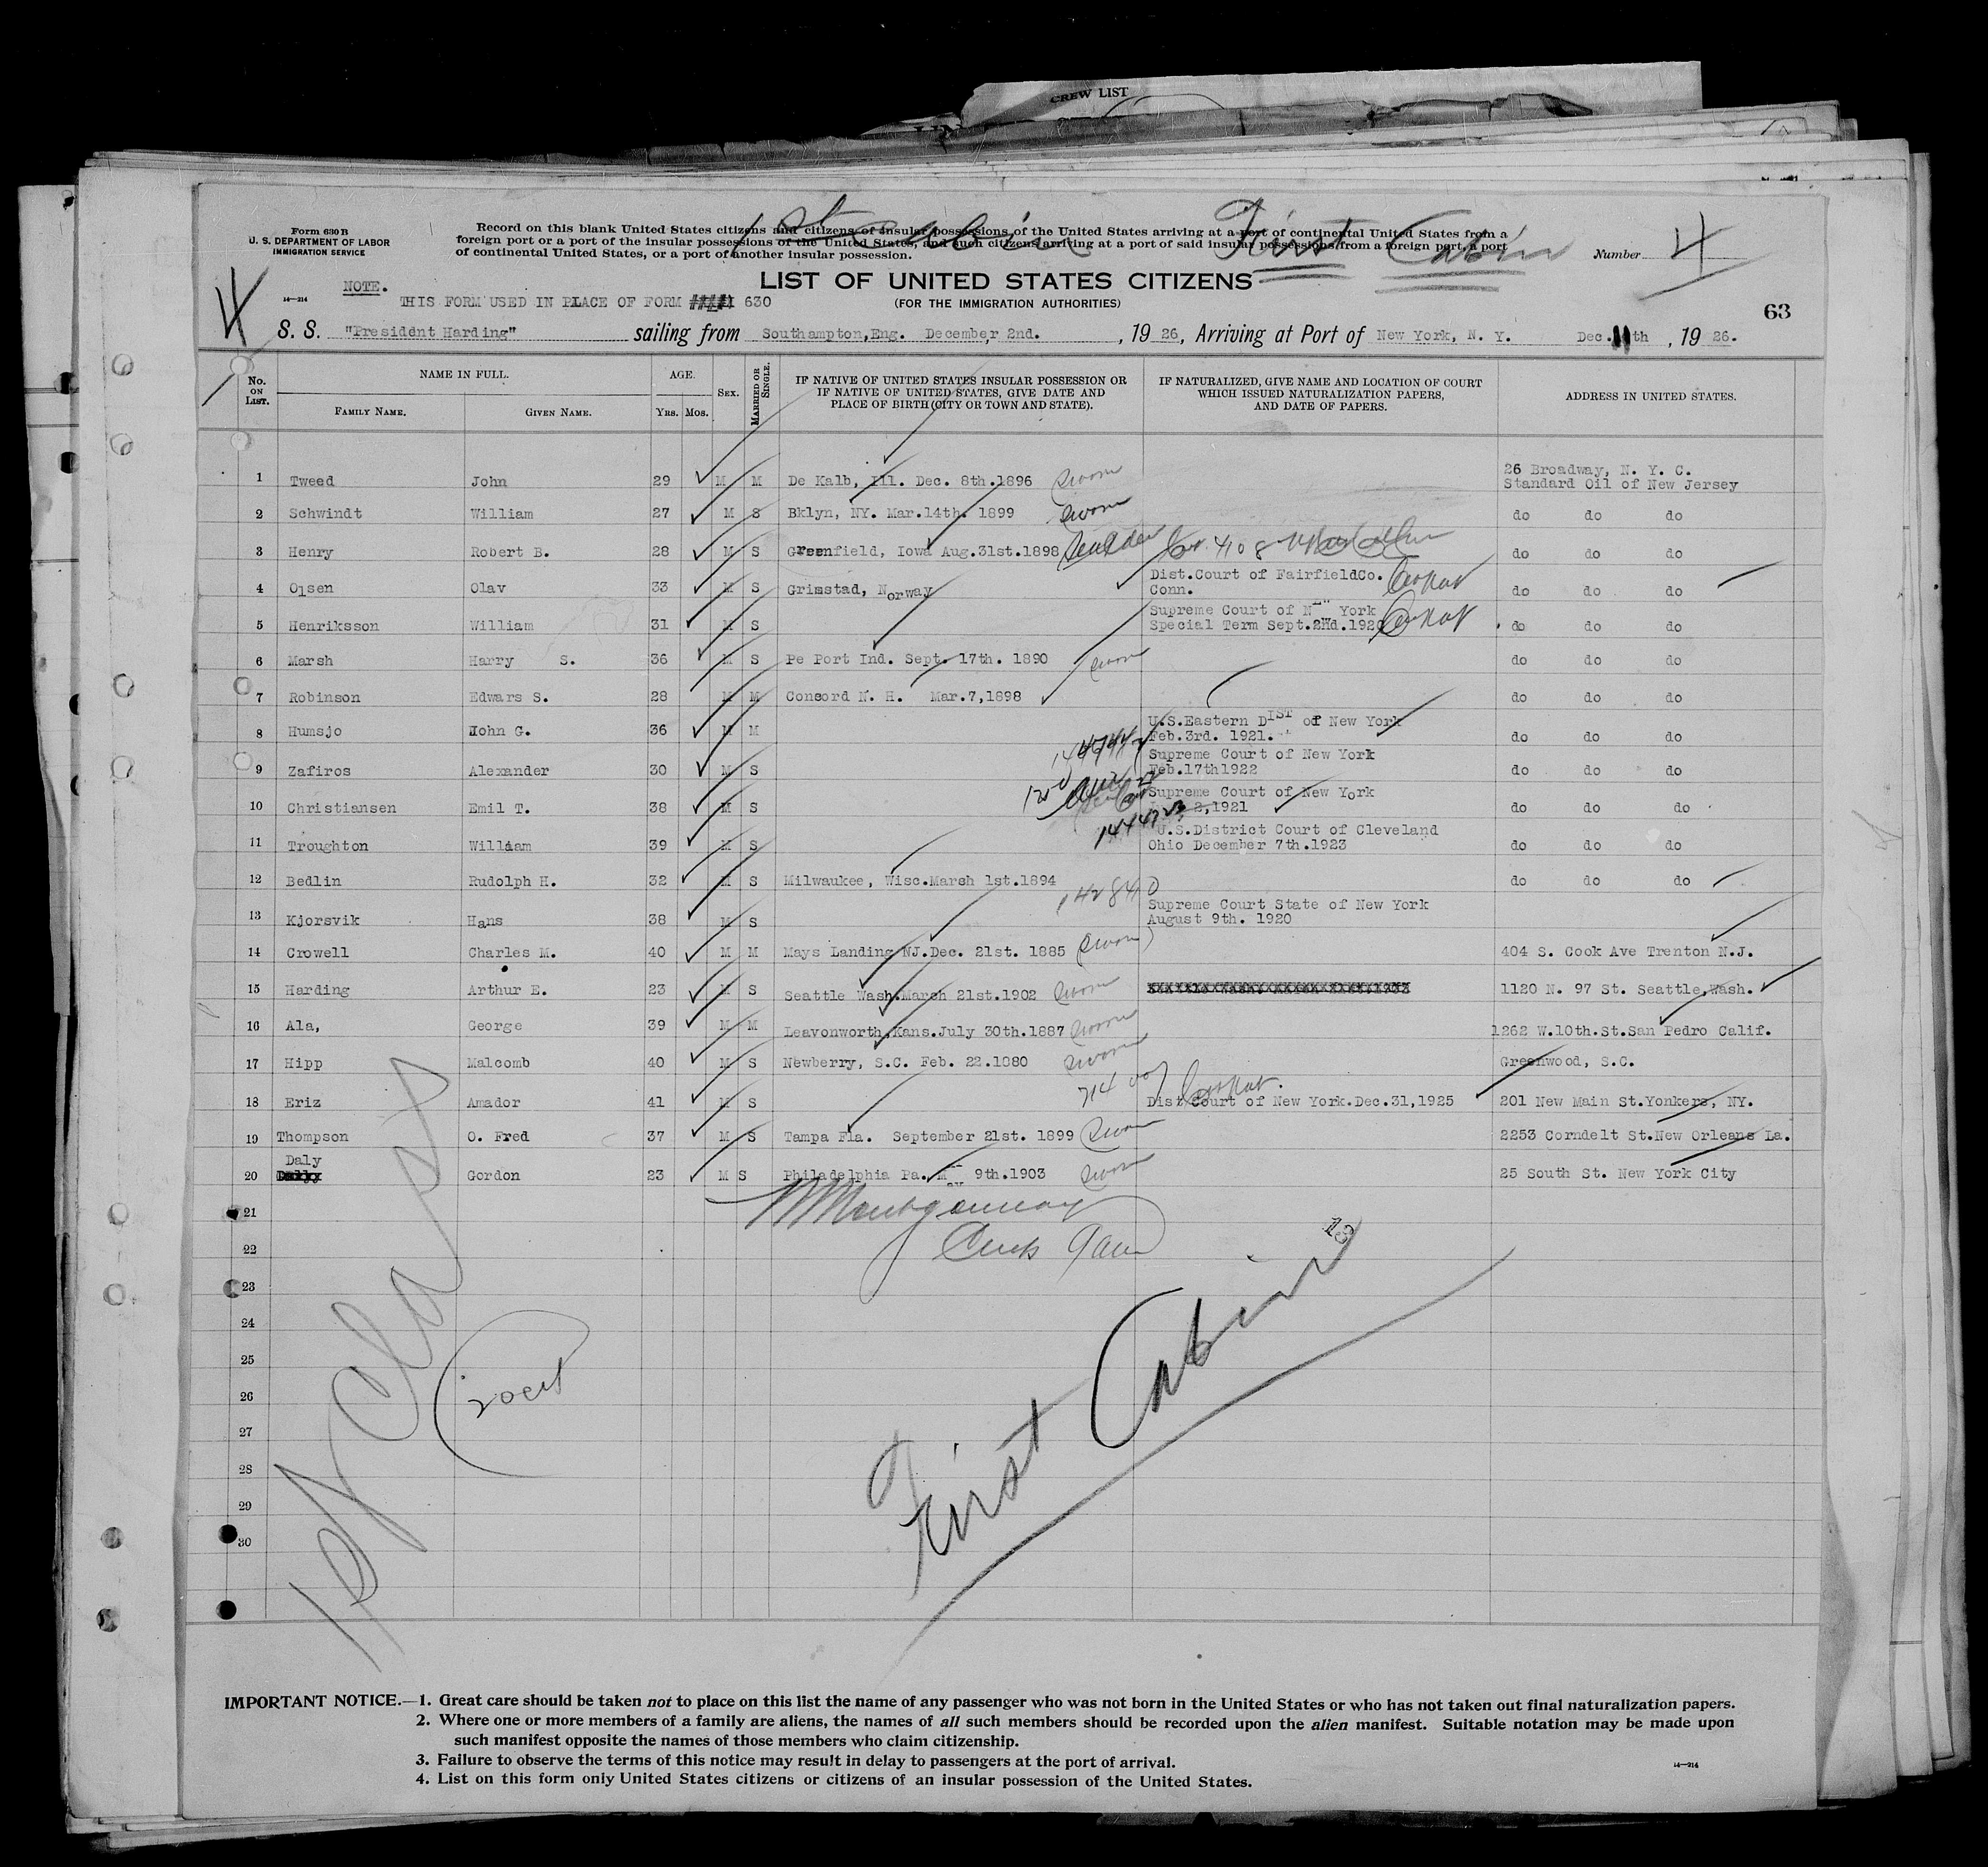 CREW LIST
Form 630 B
U. S. DEPARTMENT OF LABOR
IMMIGRATION SERVICE
Record on this blank United States citizens and citizens of insular possessions of the United States arriving at a port of continental United States from a
foreign port or a port of the insular possessions of the United States, and such citizens arriving at a port of said insular possessions from a foreign port, a port
of continental United States, or a port of another insular possession.
1st cabin
First Cabin
Number 4
LIST OF UNITED STATES CITIZENS
(FOR THE IMMIGRATION AUTHORITIES)
4
14—214
NOTE.
THIS FORM USED IN PLACE OF FORM 630
63
S. S. "President Harding" sailing from Southampton,Eng. December 2nd. , 19 26, Arriving at Port of New York, N. Y. Dec.11th , 19 26.
No. ON LIST. NAME IN FULL. FAMILY NAME. GIVEN NAME. AGE. YRS. MOS. SEX. MARRIED OR SINGLE. IF NATIVE OF UNITED STATES INSULAR POSSESSION OR IF NATIVE OF UNITED STATES, GIVE DATE AND PLACE OF BIRTH (CITY OR TOWN AND STATE). IF NATURALIZED, GIVE NAME AND LOCATION OF COURT WHICH ISSUED NATURALIZATION PAPERS, AND DATE OF PAPERS. ADDRESS IN UNITED STATES.
1 Tweed John 29 M M De Kalb, Ill. Dec. 8th.1896 Sworn 26 Broadway, N. Y. C. Standard Oil of New Jersey
2 Schwindt William 27 M S Bklyn, NY. Mar.14th. 1899 Sworn do do do
3 Henry Robert B. 28 M S Greenfield, Iowa Aug.31st.1898 do do do
4 Olsen Olav 33 M S Grimstad, Norway Dist.Court of FairfieldCo. Conn. do do do
5 Henriksson William 31 M S Supreme Court of New York Special Term Sept.2Wd.1920 do do do
6 Marsh Harry S. 36 M S Pe Port Ind. Sept. 17th. 1890 Sworn do do do
7 Robinson Edwars S. 28 M M Concord N. H. Mar.7,1898 do do do
8 Humsjo John G. 36 M M U.S.Eastern DIST of New York Feb.3rd. 1921. do do do
9 Zafiros Alexander 30 M S Supreme Court of New York Feb.17th1922 do do do
10 Christiansen Emil T. 38 M S Supreme Court of New York 2,1921 do do do
11 Troughton William 39 M S U.S.District Court of Cleveland Ohio December 7th.1923 do do do
12 Bedlin Rudolph H. 32 M S Milwaukee, Wisc.Marsh 1st.1894 do do do
13 Kjorsvik Hans 38 M S Supreme Court State of New York August 9th. 1920
14 Crowell Charles M. 40 M M Mays Landing NJ.Dec. 21st. 1885 Sworn 404 S. Cook Ave Trenton N.J.
15 Harding Arthur E. 23 M S Seattle Wash.March 21st.1902 Sworn 1120 N. 97 St. Seattle,Wash.
16 Ala, George 39 M M Leavonworth,Kans.July 30th.1887 Sworn 1262 W.10th.St.San Pedro Calif.
17 Hipp Malcomb 40 M S Newberry, S.C. Feb. 22.1880 Sworn Greenwood, S.C.
18 Eriz Amador 41 M S Dist.Court of New York.Dec.31,1925 201 New Main St.Yonkers, NY.
19 Thompson O. Fred 37 M S Tampa Fla. September 21st. 1899 Sworn 2253 Corndelt St.New Orleans La.
20 Daly Gordon 23 M S Philadelphia Pa. May 9th.1903 Sworn 25 South St. New York City
21
22
23
24
25
26
27
28
29
30
13
First Cabin
1st Class
IMPORTANT NOTICE.—1. Great care should be taken not to place on this list the name of any passenger who was not born in the United States or who has not taken out final naturalization papers.
2. Where one or more members of a family are aliens, the names of all such members should be recorded upon the alien manifest. Suitable notation may be made upon
such manifest opposite the names of those members who claim citizenship.
3. Failure to observe the terms of this notice may result in delay to passengers at the port of arrival.
4. List on this form only United States citizens or citizens of an insular possession of the United States.
14—214